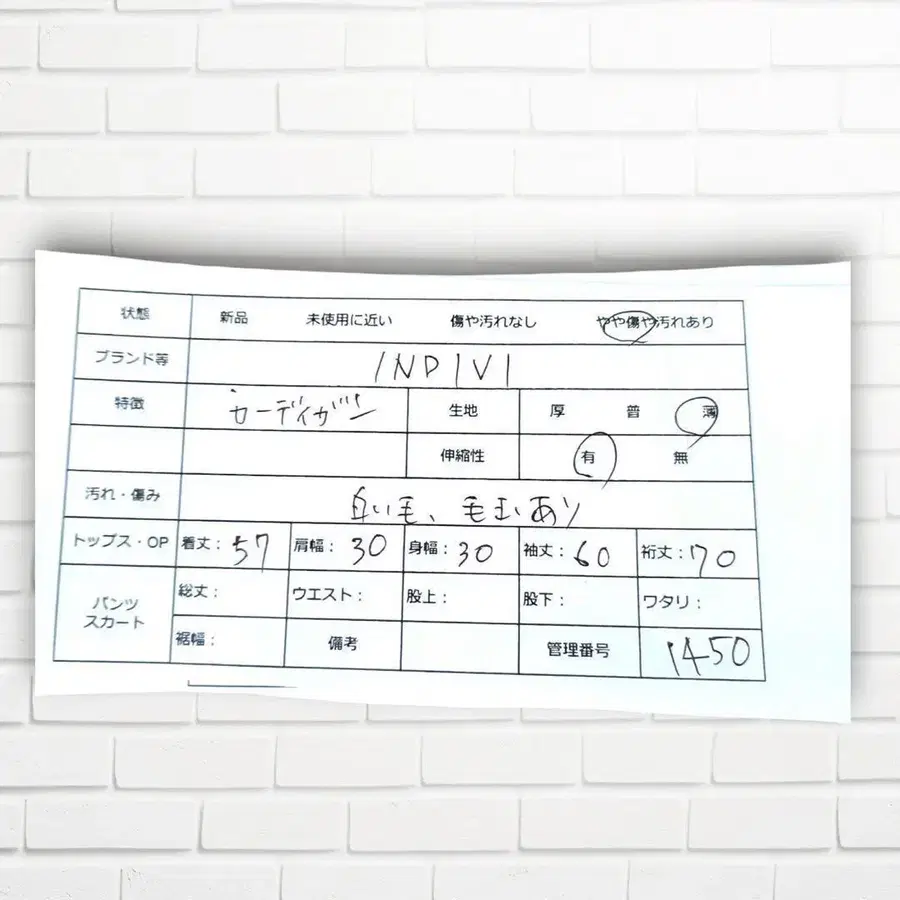 状態 新品 未使用に近い 傷や汚れなし やや傷や汚れあり
ブランド等 INDIVI
特徴 カーディガン 生地 厚 普 薄
伸縮性 有 無
汚れ・傷み 白い毛、毛玉あり
トップス・OP 着丈：57 肩幅：30 身幅：30 袖丈：60 裄丈：70
パンツ スカート 総丈： ウエスト： 股上： 股下： ワタリ：
裾幅： 備考 管理番号 1450